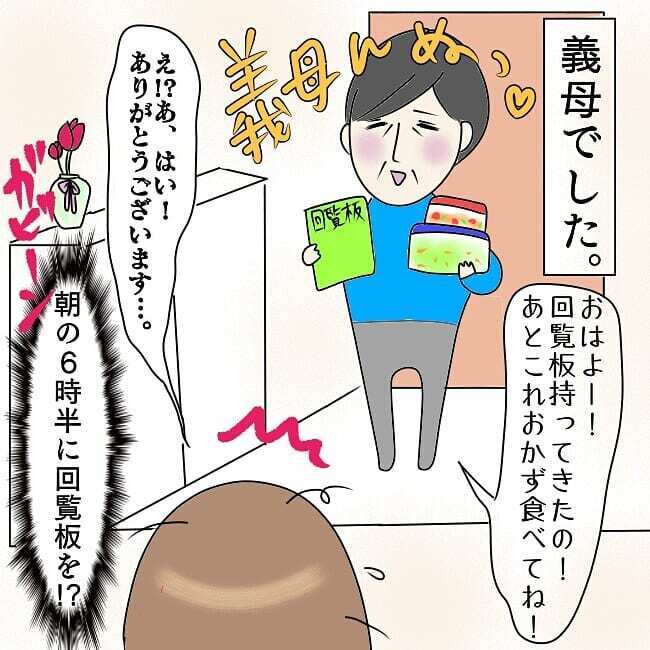 義母でした。
義母んぬっ♡
回覧板
おはよー！
回覧板持ってきたの！
あとこれおかず食べてね！
え!?あ、はい！
ありがとうございます…。
ガビーン
朝の６時半に回覧板を!?